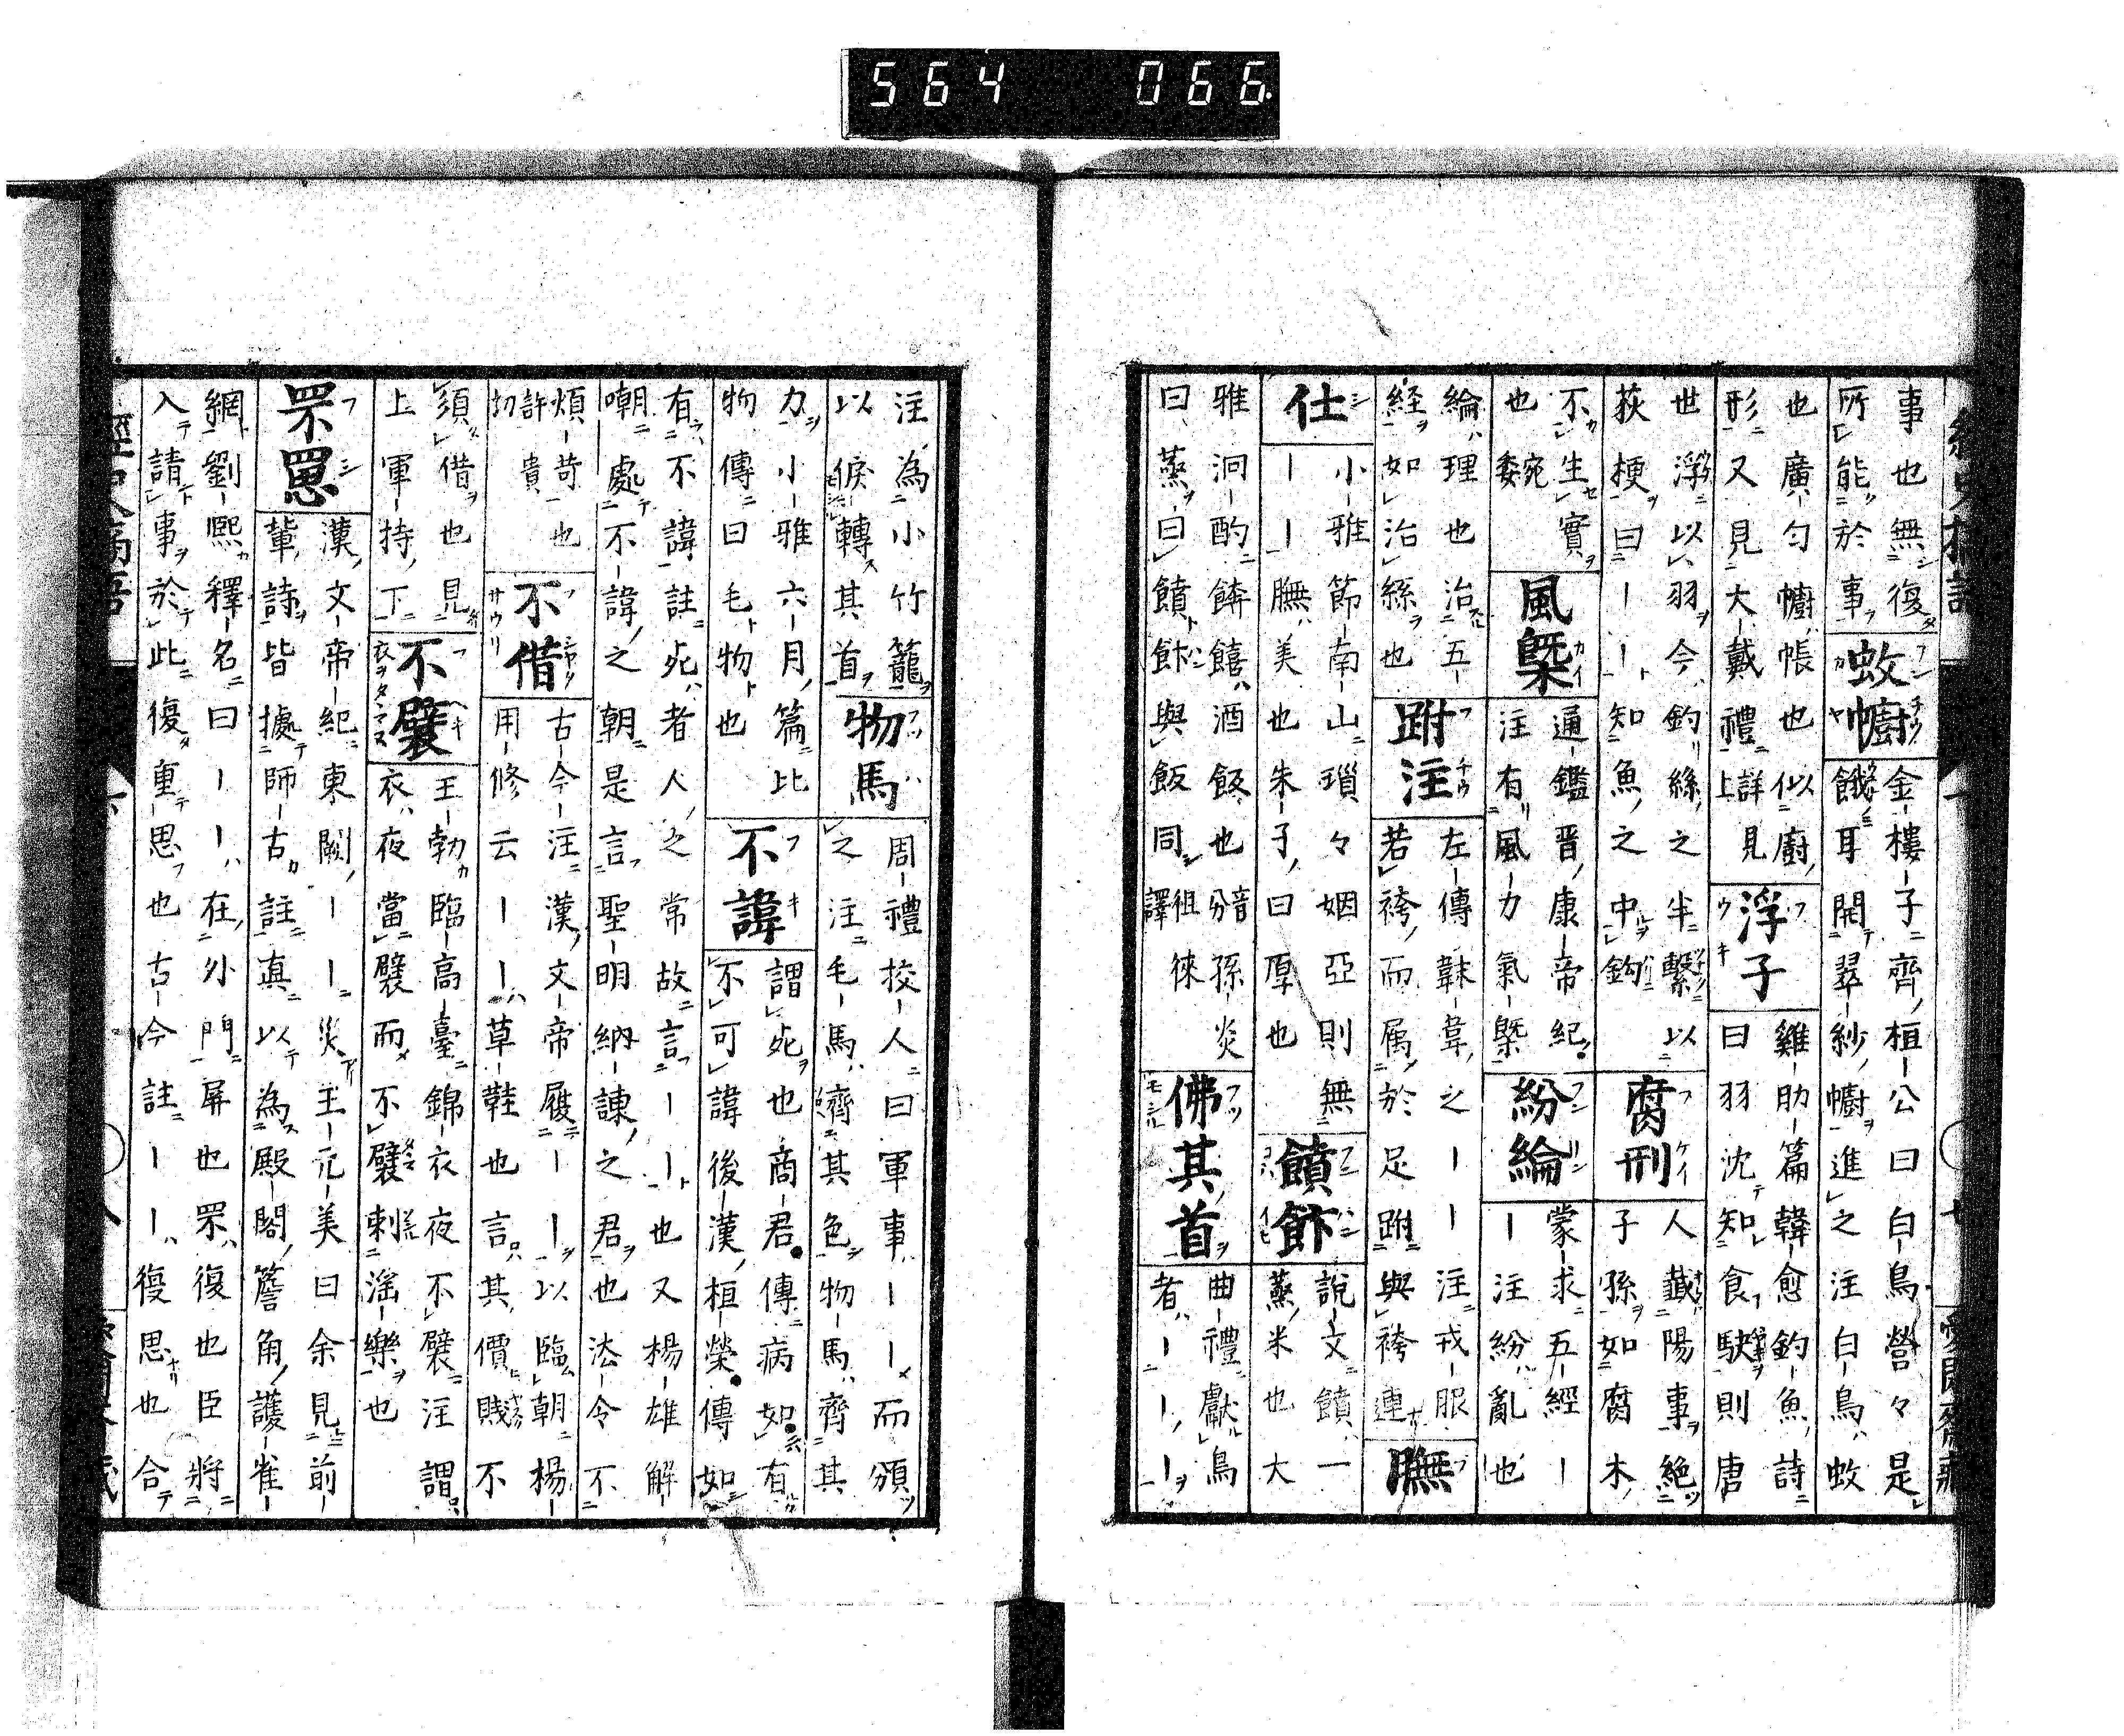 564 066
事也無復
所能於事
蚊幮
金樓子齊桓公曰白鳥營々是
餓耳開翠紗幮進之注白鳥蚊
也廣勻幮帳也似廚
形又見大戴禮詳見上
浮子
雞肋篇韓愈釣魚詩
曰羽沈知食駛則唐
世浮以羽今釣絲之半繫以
荻梗曰——知魚之中鈎
腐刑
人藏陽事絶
子孫如腐木
不生實
也 宛委
風槩
通鑑晋康帝紀
注有風力氣槩
紛綸
蒙求五經—
—注紛亂也
綸理也治五
経如治絲也
跗注
左傳韎韋之——注戎服
若袴而属於足跗與袴連
膴仕
小雅節南山瑣々姻亞則無
——膴美也朱子曰厚也
饙餴
説文饙一
蒸米也大
雅泂酌餴饎酒飯也音分孫炎
曰蒸曰饙餴與飯同徂徠譯
佛其首
曲禮獻鳥
者———
注為小竹籠
以捩轉其首
物馬
周禮校人曰軍事——而頒
之注毛馬齊其色物馬齊其
力小雅六月篇比
物傳曰毛物也
不諱
謂死也商君傳病如有
不可諱後漢桓榮傳如
有不諱註死者人之常故言——也又楊雄解
嘲處不諱之朝是言聖明納諫之君也法令不
煩苛也
許貴切
不借
古今注漢文帝履——以臨朝楊
用修云——草鞋也言其價賤不
須借也見
上軍持下
不襞
王勃臨高臺錦衣夜不襞注謂
衣夜當襞而不襞刺滛樂也
罘罳
漢文帝紀東闕——災王元美曰余見前
輩詩皆據師古註真以為殿閣簷角護雀
網劉熙釋名曰——在外門屏也罘復也臣將
入請事於此復重思也古今註——復思也合